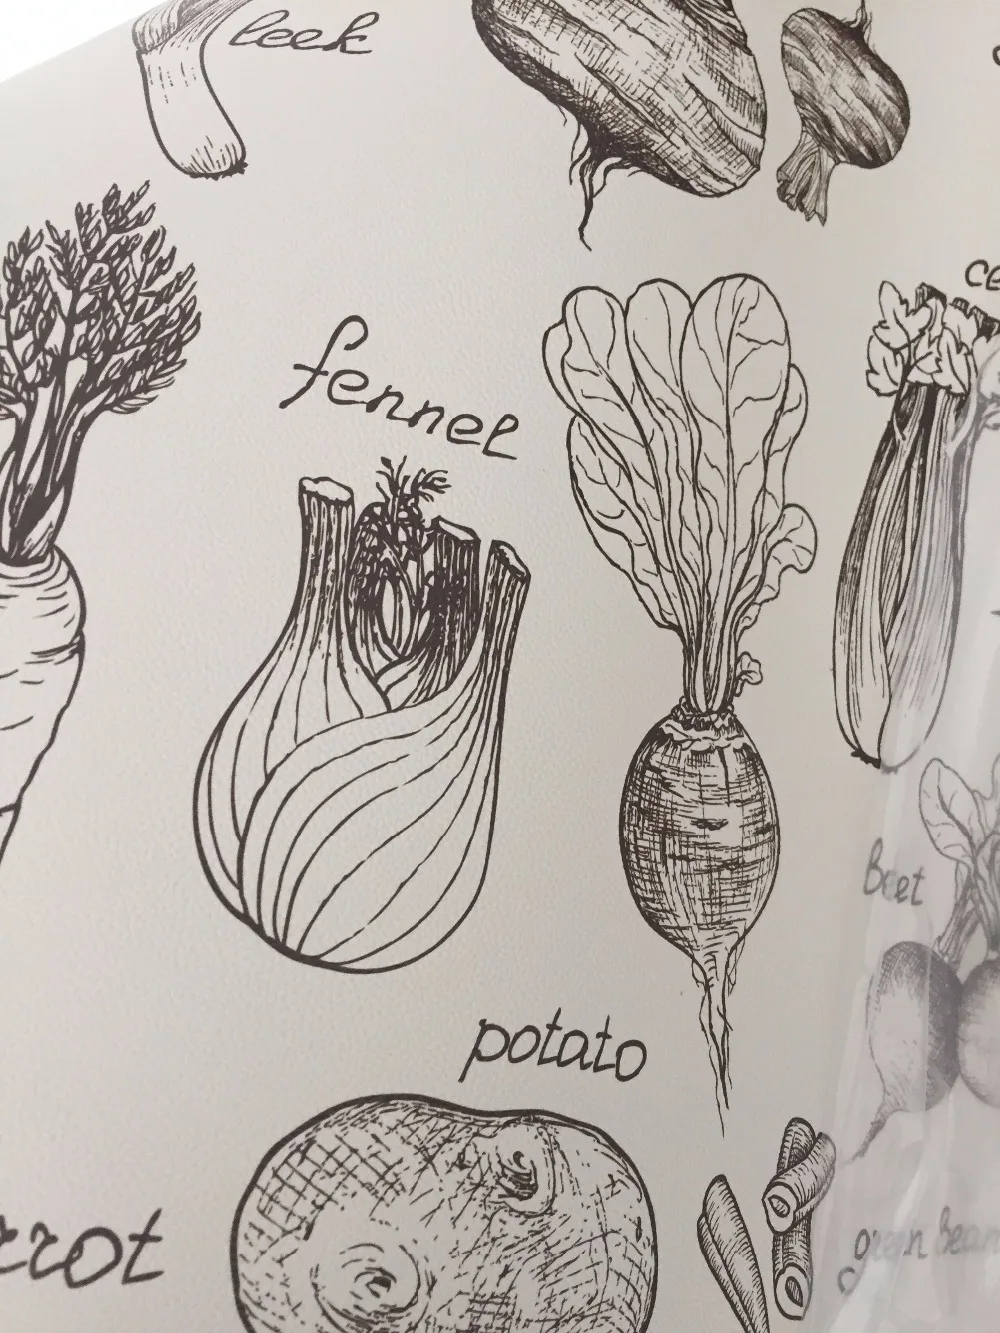 leek
ce
fennel
Beet
potato
rrot
green bean